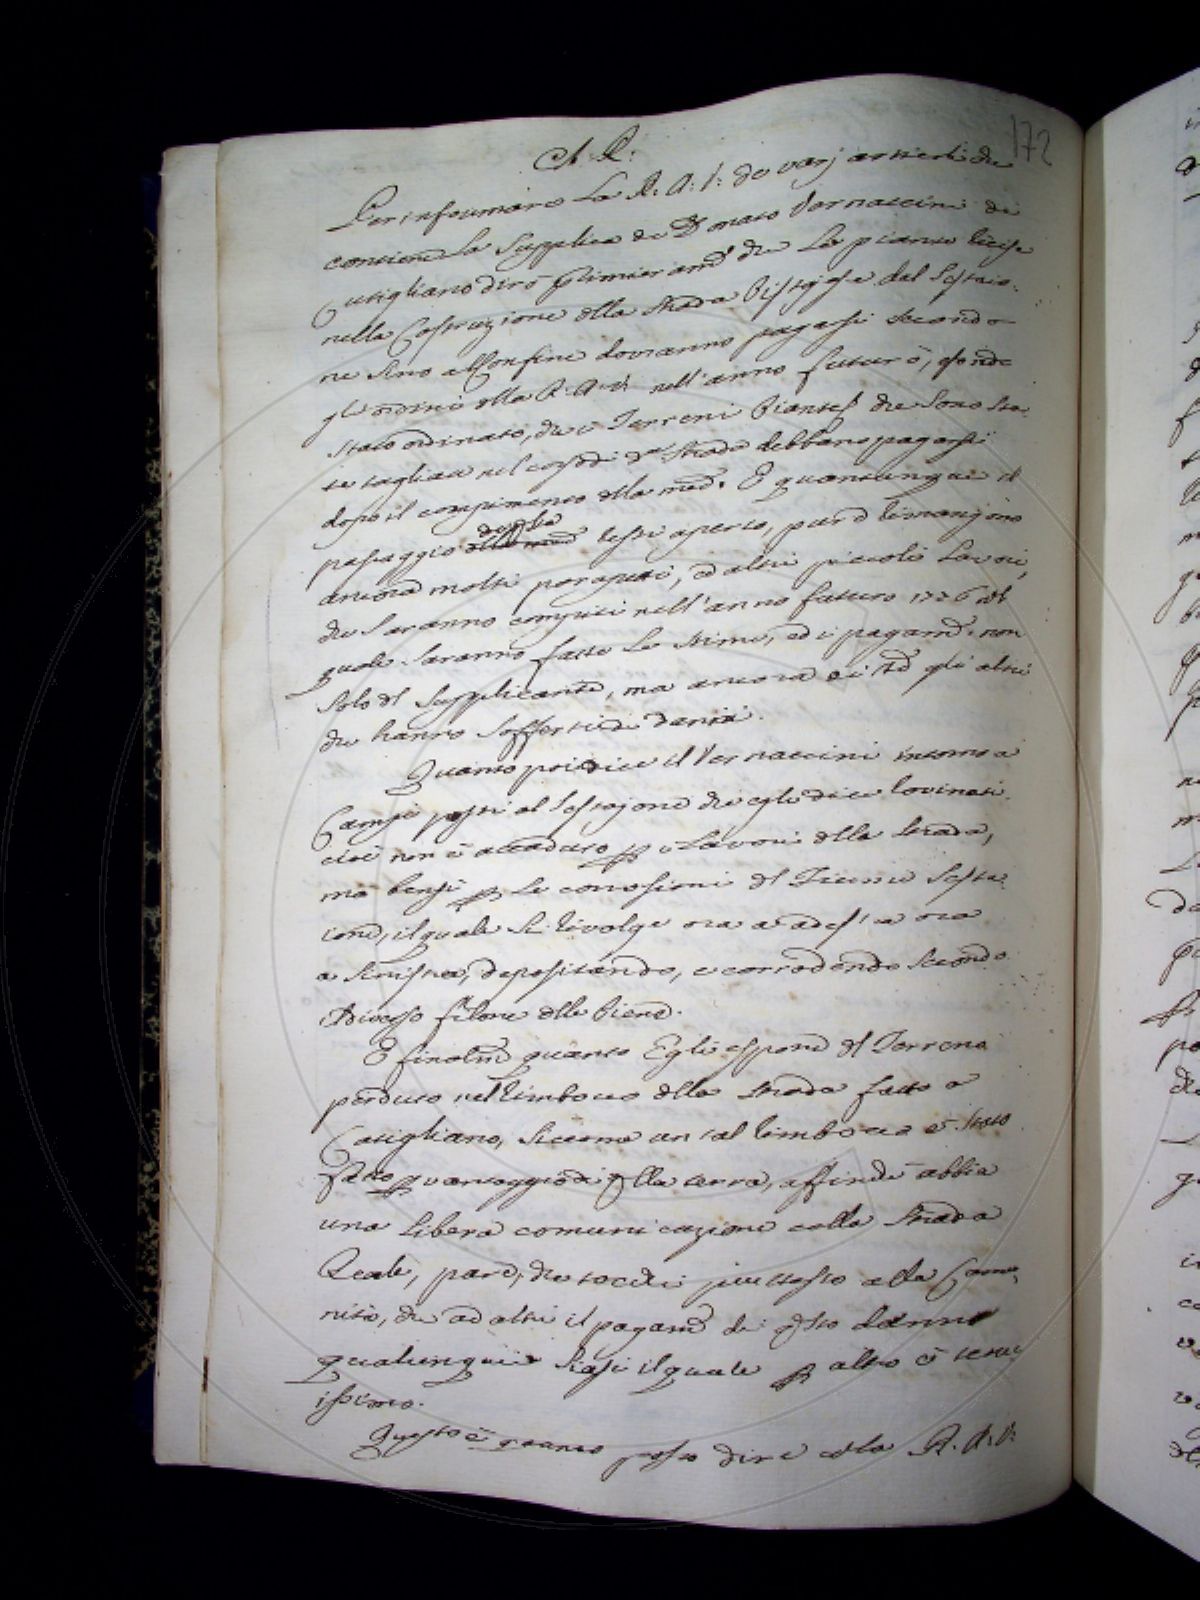 172
A. R.
Per informare La R. A. V. de varj articoli che
contiene la Supplica di Donato Vernaccini di
Cutigliano dirò primieramte che Le piante recise
nella Costruzione della Strada Pistojese dal Sestaio-
ne sino al Confine dovranno pagarsi secondo
gl'ordini della R. A. V. nell'anno futuro,
stato ordinato, che i Terreni che Sono Sta-
te tagliate nel corso di da Strada debbano pagarsi
dopo il compimento della med. E quantunque il
passaggio della med resti aperto, pure rimangono
ancora molti parapetti, ed altri piccoli Lavori,
che Saranno compiti nell'anno futuro 1776 nel
quale Saranno fatte Le Stime, ed i pagamti non
Solo al Supplicante, ma ancora a tti gli altri
che hanno Sofferti danni.
Quanto poi dice il Vernaccini intorno a
Campi posti al Sestajone che egli dice rovinati
ciò non è accaduto p i Lavori della Strada,
ma bensì p Le corrosioni del Fiume Sesta-
ione, il quale Si rivolge ora a destra ora
a Sinistra, depositando, e corrodendo Secondo
il Diverso filone delle Piene.
E finalmte quanto Egli espone del Terreno
perduto nel rimbocco della Strada fatto a
Cutigliano, Siccome un tal rimbocco è Stato
fatto p vantaggio di qlla terra, affinchè abbia
una Libera comunicazione colla Strada
Reale, pare, che tocchi piuttosto alla Comu-
nità, che ad altri il pagamto di qsto danno
qualunque Siasi il quale p altro è tenu-
issimo.
Questo è quanto posso dire alla R. A. V.